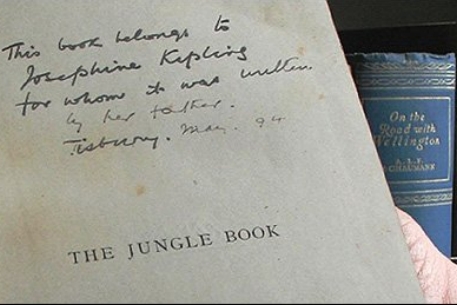 This book belongs to
Josephine Kipling
for whom it was written
by her father.
Tisbury. May. 94
THE JUNGLE BOOK
On the
Road with
Wellington
A. L. F.
SCHAUMANN